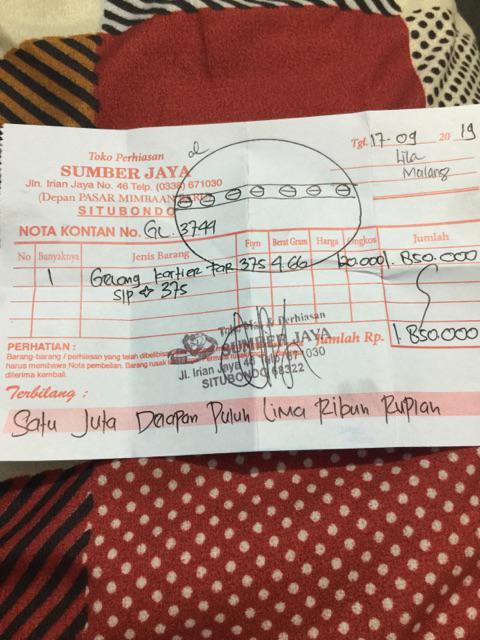 Tgl. 17-09 2019
Lila
Malang
Toko Perhiasan
SUMBER JAYA
Jln. Irian Jaya No. 46 Telp. (0338) 671030
(Depan PASAR MIMBAAN
SITUBONDO
NOTA KONTAN No. GL. 3744
No Banyaknya Jenis Barang Berat Gram Harga Ongkos Jumlah
1 Gelang Kartier 375 4.66 1.850.000
SIP 375
Toko Mas & Perhiasan
SUMBER JAYA
Jl. Irian Jaya 46 Telp. 671030
SITUBONDO 68322
Jumlah Rp. 1.850.000
PERHATIAN :
Barang-barang / perhiasan yang telah
harus membawa Nota pembelian. Barang rusak
diterima kembali.
Terbilang :
Satu Juta Delapan Puluh Lima Ribun Rupiah